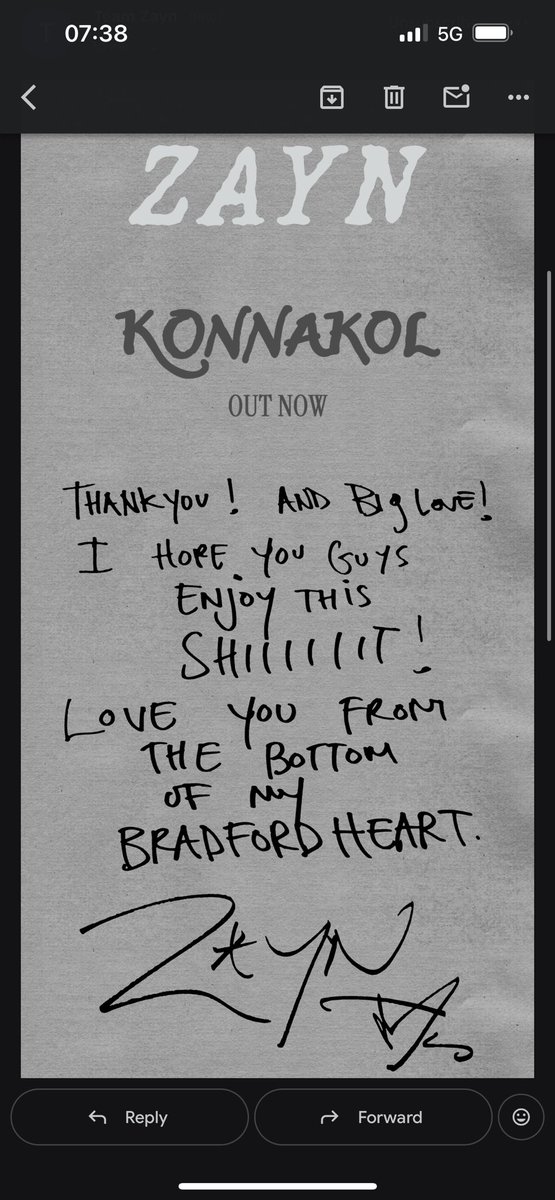 07:38
5G
ZAYN
KONNAKOL
OUT NOW
THANK YOU! AND BIg LOVE!
I HOPE YOU GUYS
ENJOY THiS
SHIIIIIIIT!
LOVE YOU FROM
THE BOTTOM
OF MY
BRADFORD HEART.
ZAYN
Reply
Forward